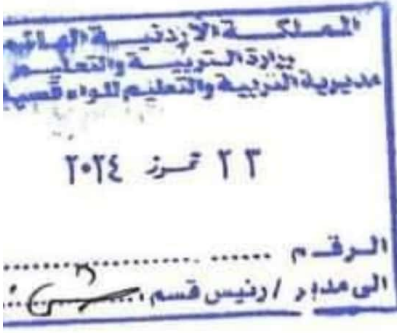 المملكة الأردنية الهاشم
وزارة التربية والتعليم
مديرية التربية والتعليم للواء قصب
٢٣ تمــوز ٢٠٢٤
الـرقــم ..................
الى مدير / رئيس قسم